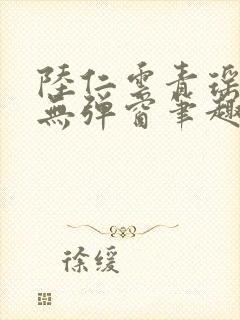 陸仁雲青瑶
無彈窗筆趣
徐缓